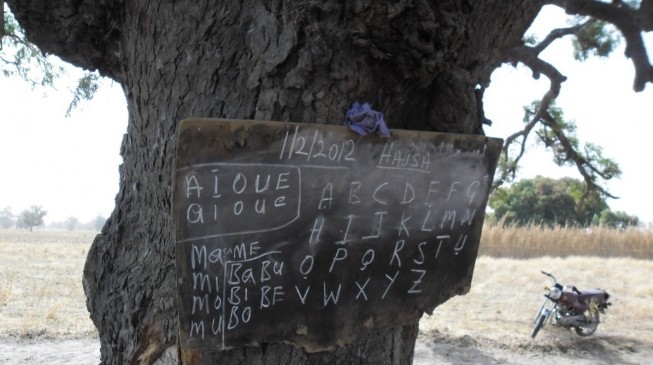 1/2/2012 HAUSA
A I O U E
a i o u e
A B C D E F G
H I J K L M N
O P Q R S T U
V W X Y Z
Ma ME
Mi BaBU
MO BI BE
MU BO